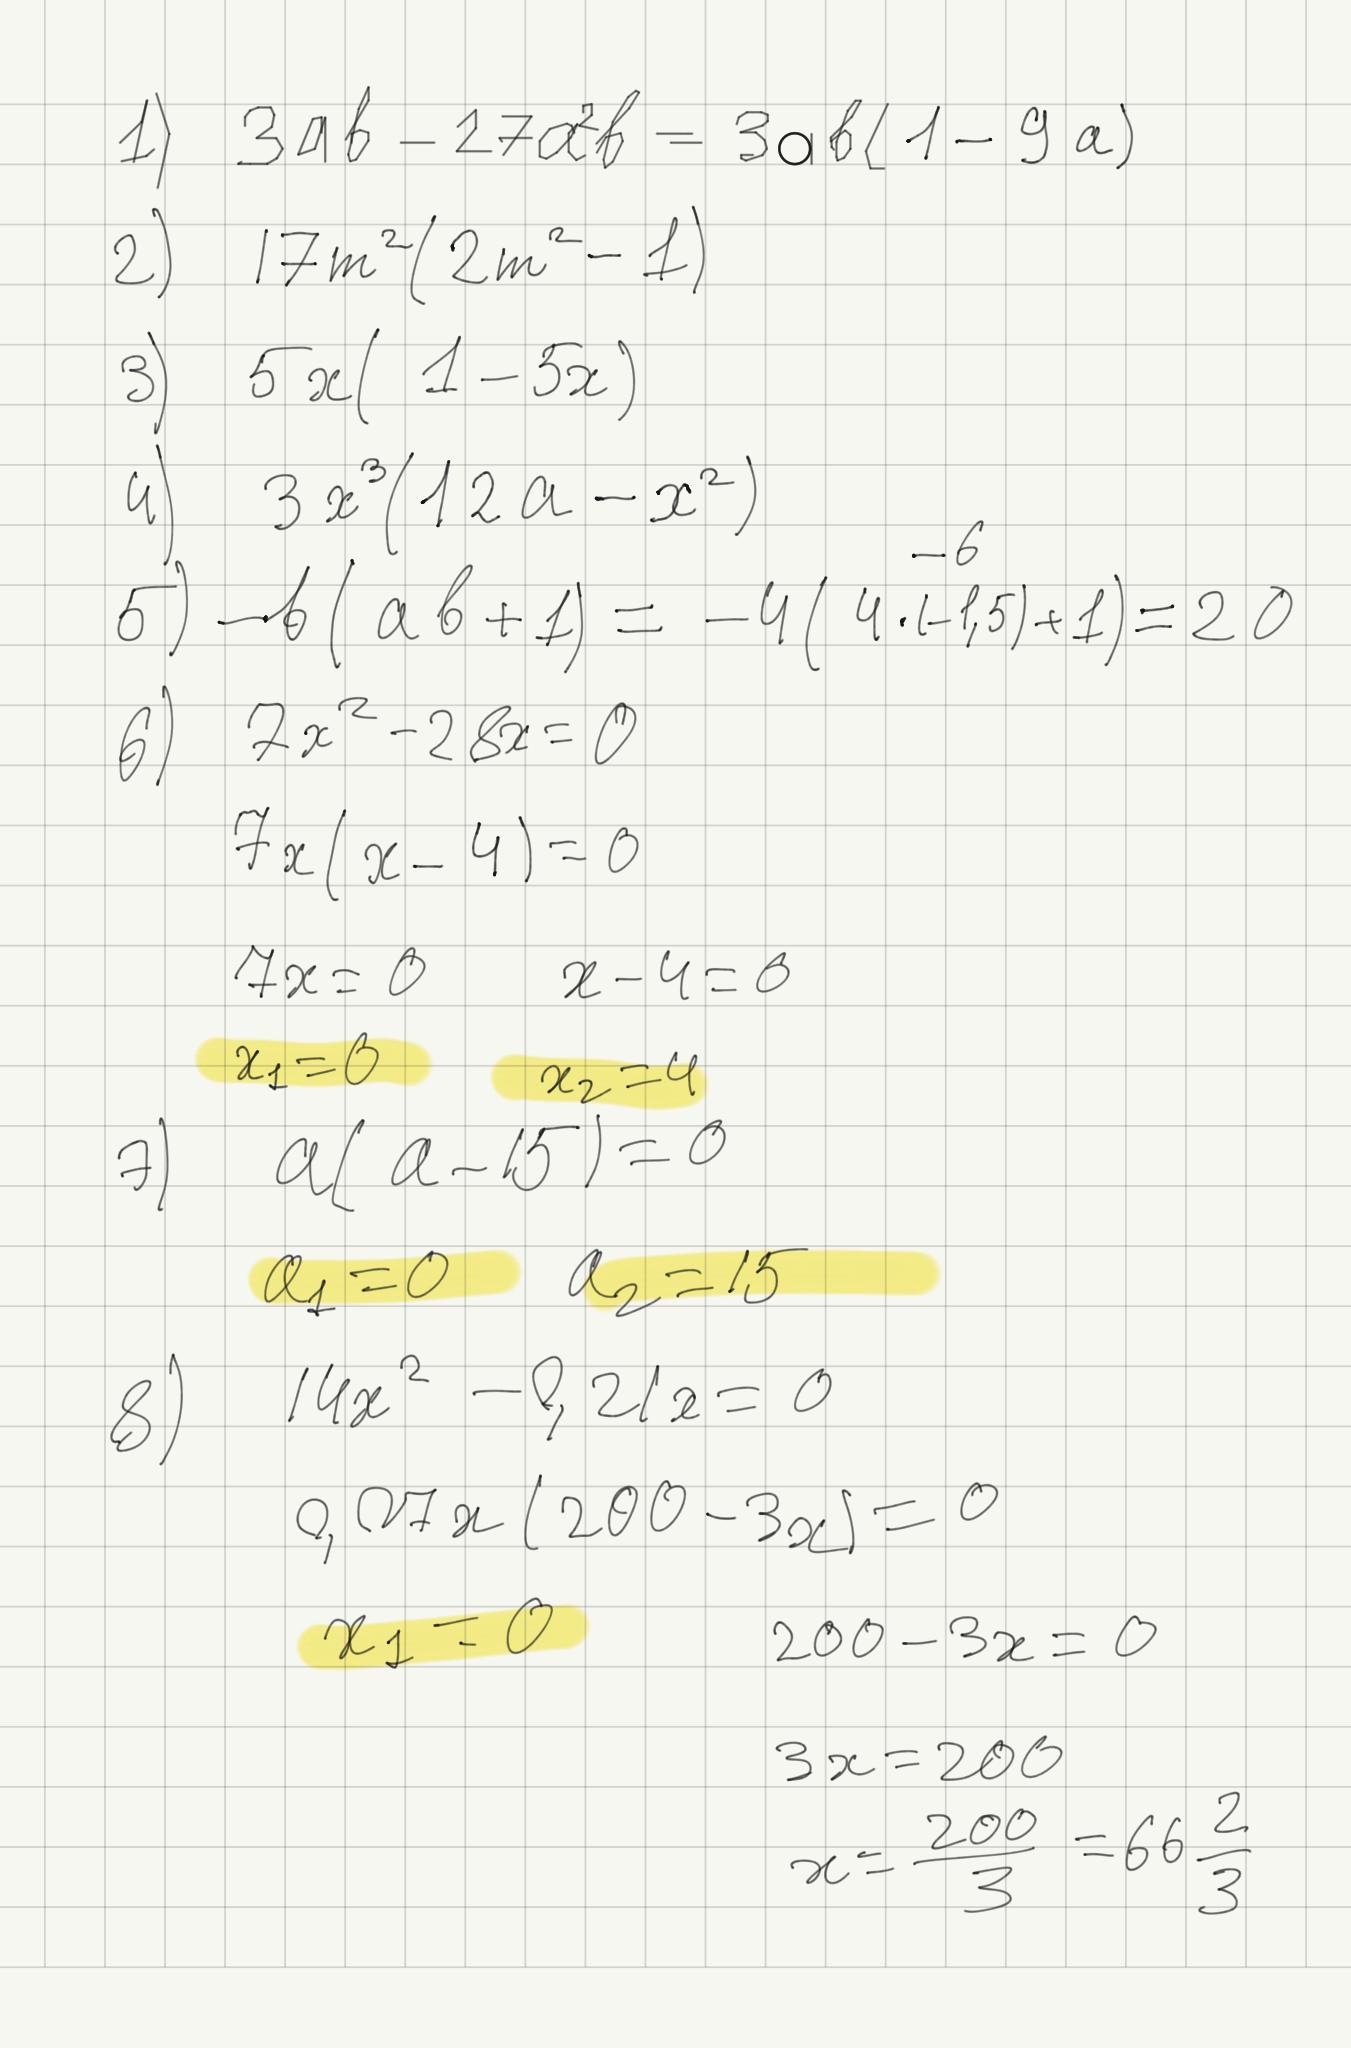 1) 3ab - 27a²b = 3ab(1 - 9a)
2) 17m²(2m² - 1)
3) 5x(1 - 5x)
4) 3x³(12a - x²)
-6
5) -b(ab + 1) = -4(4·(-1,5) + 1) = 20
6) 7x² - 28x = 0
7x(x - 4) = 0
7x = 0 x - 4 = 0
x₁ = 0 x₂ = 4
7) a(a - 15) = 0
a₁ = 0 a₂ = 15
8) 14x² - 0,21x = 0
0,07x(200 - 3x) = 0
x₁ = 0 200 - 3x = 0
3x = 200
x = 200/3 = 66 2/3